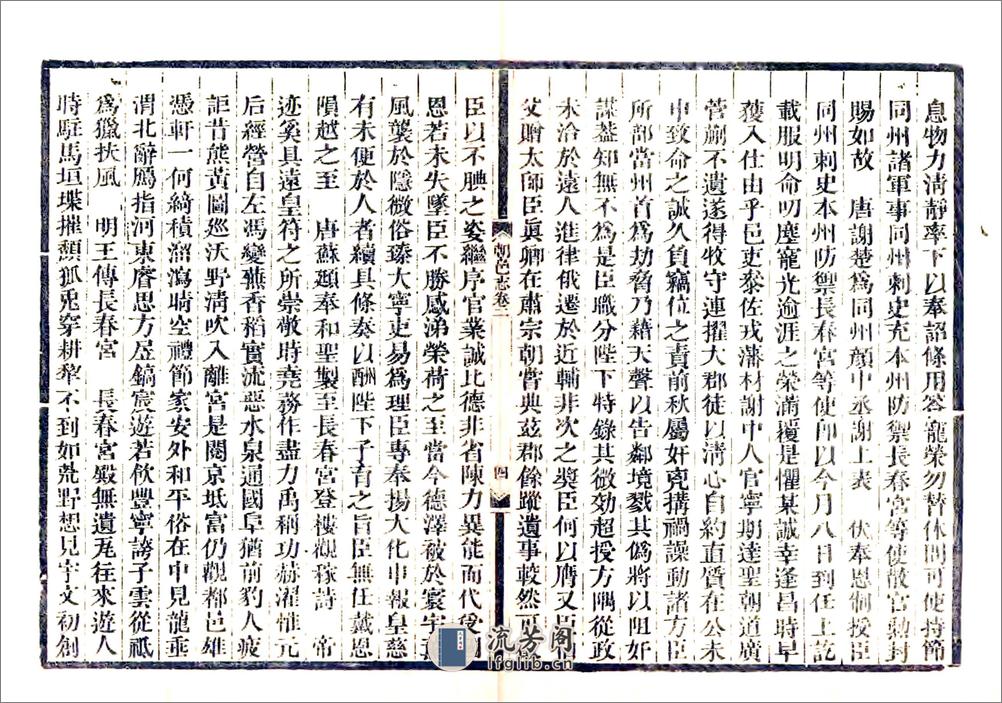 息物力淸靜率下以奉詔條用答寵榮勿替休問可使持節
同州諸軍事同州刺史充本州防禦長春宮等使散官勳封
賜如故　唐謝楚爲同州顏中丞謝上表　伏奉恩制授臣
同州刺史本州防禦長春宮等使卽以今月八日到任上訖
載服明命叨塵寵光逾涯之榮滿覆是懼某誠幸逢昌時早
獲入仕由乎邑吏黍佐戎藩材謝中人官寧期達聖朝道廣
菅蒯不遺遂得牧守連擢大郡徒以淸心自約直質在公未
申致命之誠久負竊位之責前秋屬奸兇搆禍譟動諸方臣
所部當州首爲劫脅乃藉天聲以告鄰境戮其僞將以阻奸
謀蓋知無不爲是臣職分陛下特錄其微効超授方隅從政
未洽於遠人進律俄遷於近輔非次之獎臣何以膺又臣
父贈太師臣眞卿在肅宗朝嘗典茲郡餘蹤遺事較然可
朝邑志卷二
四
臣以不腆之姿繼序官業誠比德非省陳力異能而代
恩若未失墜臣不勝感涕榮荷之至當今德澤被於寰宇
風襲於隱微俗臻大寧吏易爲理臣專奉揚大化申報皇慈
有未便於人者續具條奏以酬陛下子育之旨臣無任戴恩
隕越之至　唐蘇頲奉和聖製至長春宮登樓觀稼詩　帝
迹奚具遠皇符之所崇敬時堯務作盡力禹稱功赫濯惟元
后經營自左馮變蕪香稻實流惡水泉通國阜猶前豹人疲
詎昔熊黃圖巡沃野淸吹入離宮是閱京坻富仍觀都邑雄
憑軒一何綺積溜瀉晴空禮節家安外和平俗在中見龍垂
渭北辭鴈指河東睿思方居鎬宸遊若飮豐寧誇子雲從祇
爲獵扶風　明王傳長春宮　長春宮殿無遺瓦往來遊人
時駐馬垣堞摧頹狐兎穿耕犂不到如荒野想見宇文初創
流芳阁
lfglib.cn